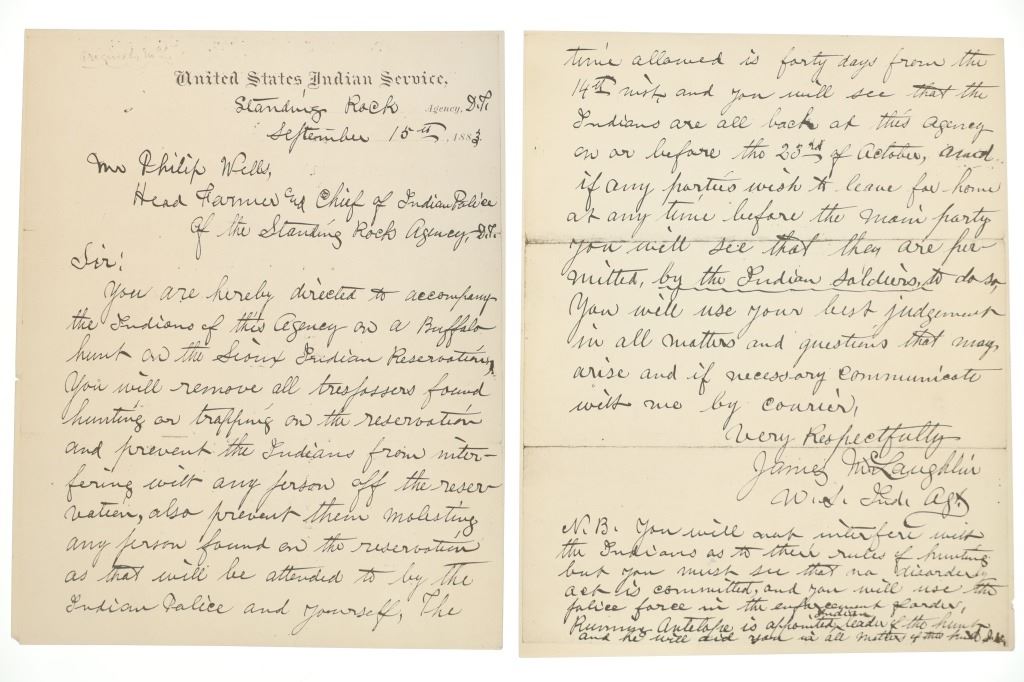 United States Indian Service,
Standing Rock Agency, D.T.
September 15th, 1883
Mr Philip Wells,
Head Farmer and Chief of Indian Police
Of the Standing Rock Agency, D.T.
Sir:
You are hereby directed to accompany
the Indians of this Agency on a Buffalo
hunt on the Sioux Indian Reservation,
You will remove all trespassers found
hunting or trapping on the reservation
and prevent the Indians from inter-
fering with any person off the reser-
vation, also prevent them molesting
any person found on the reservation
as that will be attended to by the
Indian Police and yourself, The
time allowed is forty days from the
14th inst, and you will see that the
Indians are all back at this Agency
on or before the 23rd of October, and
if any parties wish to leave for home
at any time before the main party
you will see that they are per-
mitted, by the Indian Soldiers, to do so,
You will use your best judgement
in all matters and questions that may
arise and if necessary communicate
with me by courier,
Very Respectfully
James McLaughlin
U.S. Ind. Agt
N.B. You will not interfere with
the Indians as to their rules of hunting
but you must see that no disorderly
act is committed, and you will use the
police force in the enforcement of order,
Running Antelope is appointed Indian leader of the hunt
and he will aid you in all matters of the hunt